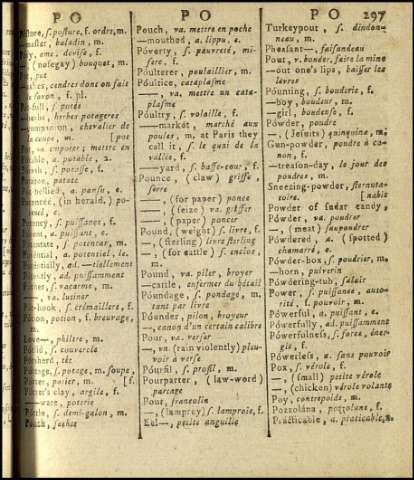 PO
PO
PO 297
Posture, s. posture, f. ordre, m.
master, baladin, m.
Posy, eme. devise, f.
(nosegay) bouquet, m.
Pot, pot
ashes, cendres dont on fait
savon, f. pl.
full, s. potée
herbes potageres
companion, chevalier de
va. emporter; mettre en
a. potable, 2.
s. potasse, f.
patate
bellied, a. pansu, e.
(in herald.) po-
e.
s. puissance, f.
a. puissant, e.
s. potentat, m.
Potential, a. potentiel, le.
Potentially, ad. —tiellement
ad. puissamment
s. vacarme, m.
—, va. lutiner
Pot-hook, s. crémaillere, f.
Potion, potion, f. breuvage,
m.
Love—, philtre, m.
Potlid, s. couvercle
Potsherd, têt
Pottage, s. potage, m. soupe,
Potter, potier, m. [f.
Potter's clay, argile, f.
—ware, poterie
Pottle, s. demi-galon, m.
Pouch, poche
Pouch, va. mettre en poche
—mouthed, a. lippu, e.
Póverty, s. pauvreté, mi-
sere, f.
Póulterer, poulaillier, m.
Póultice, cataplasme
—, va. mettre un cata-
plasme
Póultry, s. volaille, f.
—market, marché aux
poules, m. at Paris they
call it, s. le quai de la
vallée, f.
—yard, s. basse-cour, f.
Pounce, (claw) griffe,
serre
—, (for paper) ponce
—, (seize) va. griffer
—, (paper) poncer
Pound, (weight) s. livre, f.
—, (sterling) livre sterling
—, (for cattle) s. enclos,
m.
Pound, va. piler, broyer
—cattle, enfermer du bétail
Póundage, s. pondage, m.
tant par livre
Póunder, pilon, broyeur
—, canon d'un certain calibre
Pour, va. verser
—, vn (rain violently) pleu-
voir a verse
Póurfil, s. profil, m.
Pourparter, (law-word)
partage
Pout, francolin
—, (lamprey) s. lamproie, f.
Eel—, petite anguille
Turkeypout, s. dindon-
neau, m.
Pheasant—, faisandeau
Pout, vn. bouder, faire la mine
—out one's lips, baisser les
levres
Póunting, s. bouderie, f.
—boy, boudeur, m.
—girl, boudeuse, f.
Powder, poudre
—, (Jesuits) quinquina, m.
Gun-powder, poudre à ca-
non, f.
—treason-day, le jour des
poudres, m.
Sneezing-powder, sternuta-
toire. [nable
Powder of sugar candy,
Powder, va. poudrer
—, (meat) saupoudrer
Powdered, a. (spotted)
chamarré, e.
Powder-box, s. poudrier, m.
—horn, pulverin
Powdering-tub, saloir
Power, s. puissance, auto-
rité, f. pouvoir, m.
Pówerful, a. puissant, e.
Pówerfully, ad. puissamment
Powerfulness, s. force, éner-
gie, f.
Powerless, a. sans pouvoir
Pox, s. vérole, f.
—, (small) petite vérole
—, (chicken) vérole volante
Poy, contrepoids, m.
Pozzolána, pozzolane, f.
Prácticable, a. praticable, 2.